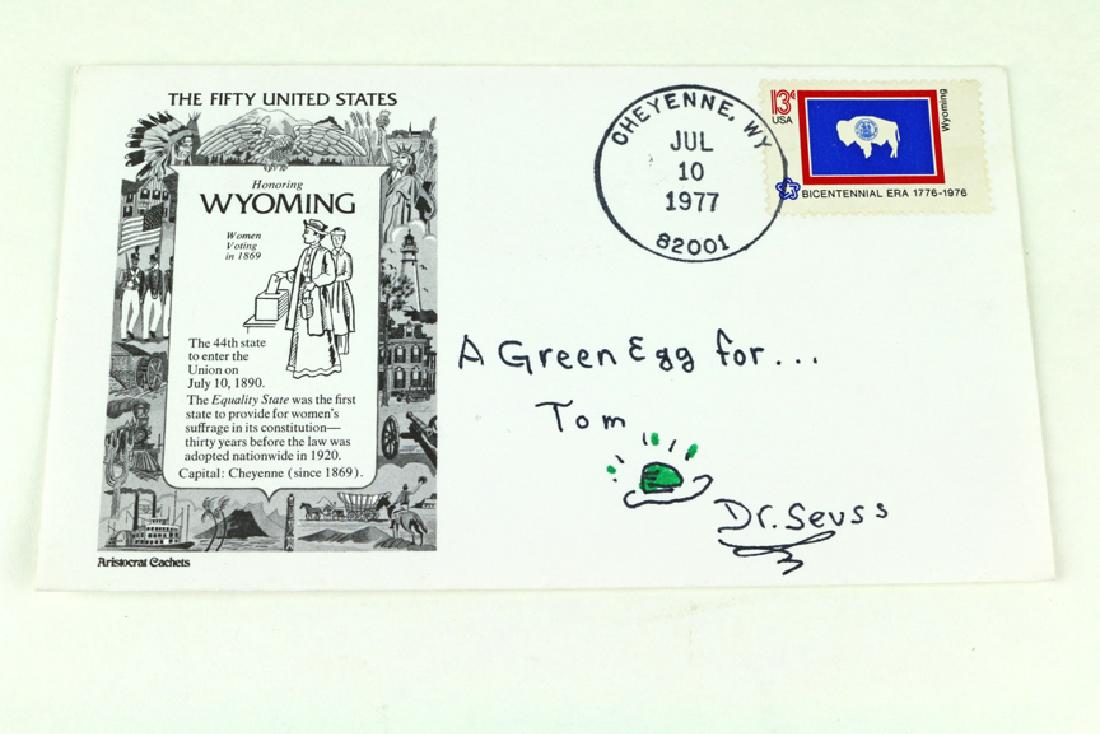 THE FIFTY UNITED STATES
Honoring
WYOMING
Women
Voting
in 1869
The 44th state
to enter the
Union on
July 10, 1890.
The Equality State was the first
state to provide for women's
suffrage in its constitution—
thirty years before the law was
adopted nationwide in 1920.
Capital: Cheyenne (since 1869).
Aristocrat Cachets
CHEYENNE, WY
JUL
10
1977
82001
13¢
USA
Wyoming
BICENTENNIAL ERA 1776-1976
A Green Egg for...
Tom
Dr. Seuss